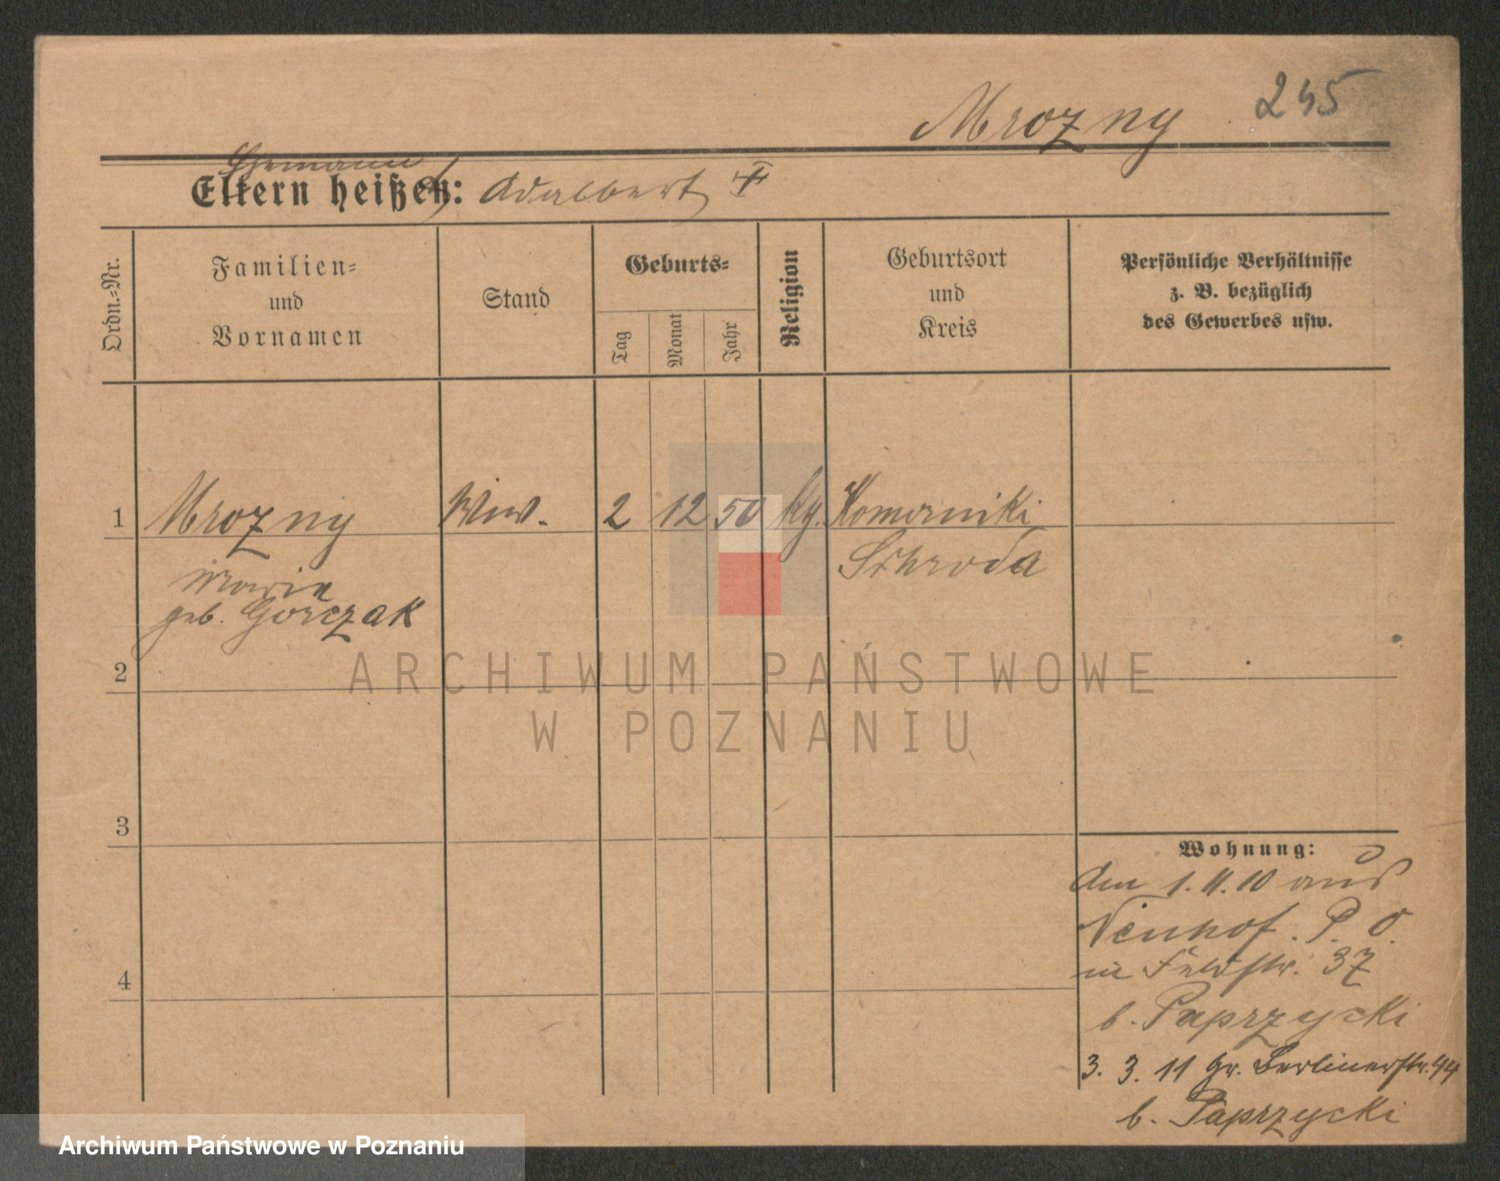 Mrozny 245
Ehemann
Eltern heißen: Adalbert †
Ordn.-Nr.
Familien-
und
Vornamen
Stand
Geburts-
Tag
Monat
Jahr
Religion
Geburtsort
und
Kreis
Persönliche Verhältnisse
z. B. bezüglich
des Gewerbes usw.
1 Mrozny Wiw. 2 12 50 kg. Komorniki
Schroda
Maria
geb. Gorczak
2
ARCHIWUM PAŃSTWOWE
W POZNANIU
3
Wohnung:
den 1.11.10 aus
Neuhof. P. O.
in Feldstr. 37
b. Paprzycki
4
3. 3. 11 Gr. Berlinerstr. 44
b. Paprzycki
Archiwum Państwowe w Poznaniu